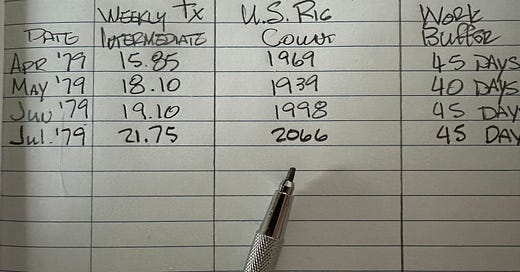 WEEKLY TX U.S. RIG WORK
DATE INTERMEDIATE COUNT BUFFER
APR '79 15.85 1969 45 DAYS
MAY '79 18.10 1939 40 DAYS
JUN '79 19.10 1998 45 DAY
Jul. '79 21.75 2066 45 DAY